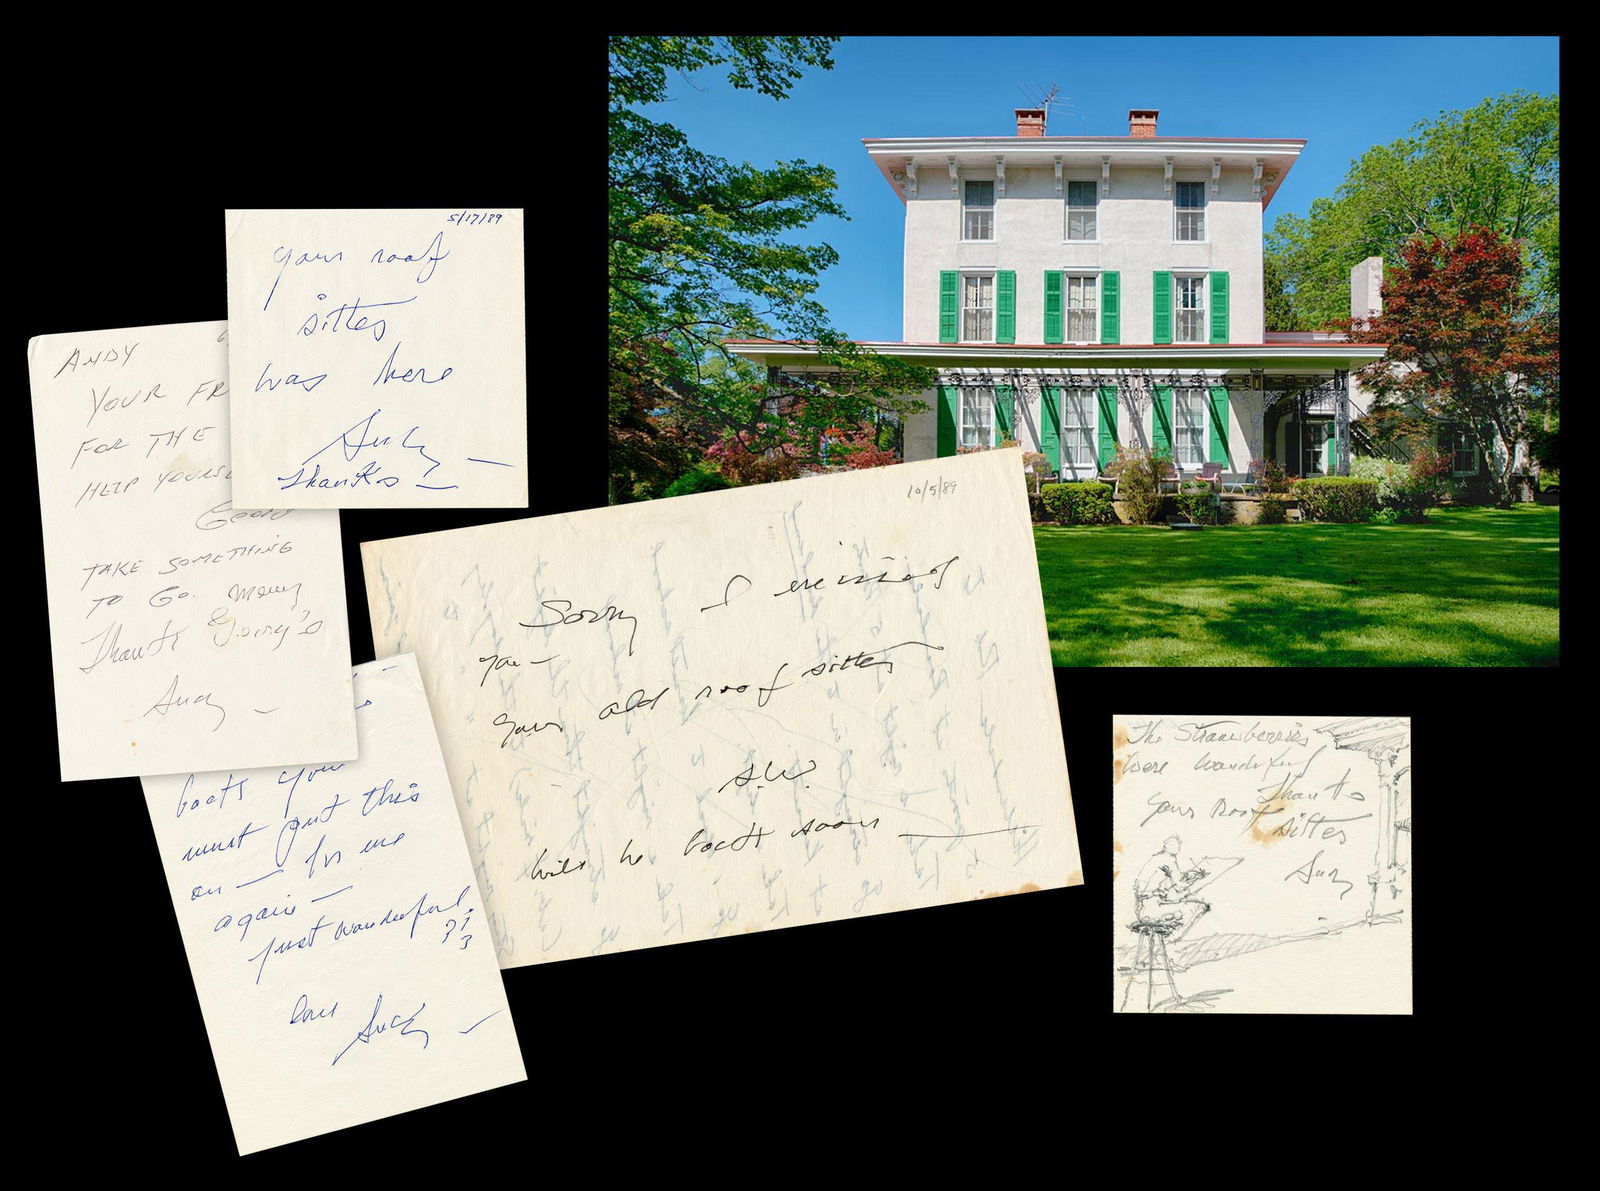 5/17/89
your roof
sitter
was here
Andy
Thanks
ANDY
YOUR FR
FOR THE
HELP YOURS
George
TAKE SOMETHING
TO GO. Many
Thanks
Andy
back you
must put this
on for me
again
just wonderful
Love
Andy
10/5/89
Sorry I missed
you
your old roof sitter
A.W.
Will be back soon
The Strawberries
were wonderful
Thanks
Your Roof
sitter
Andy